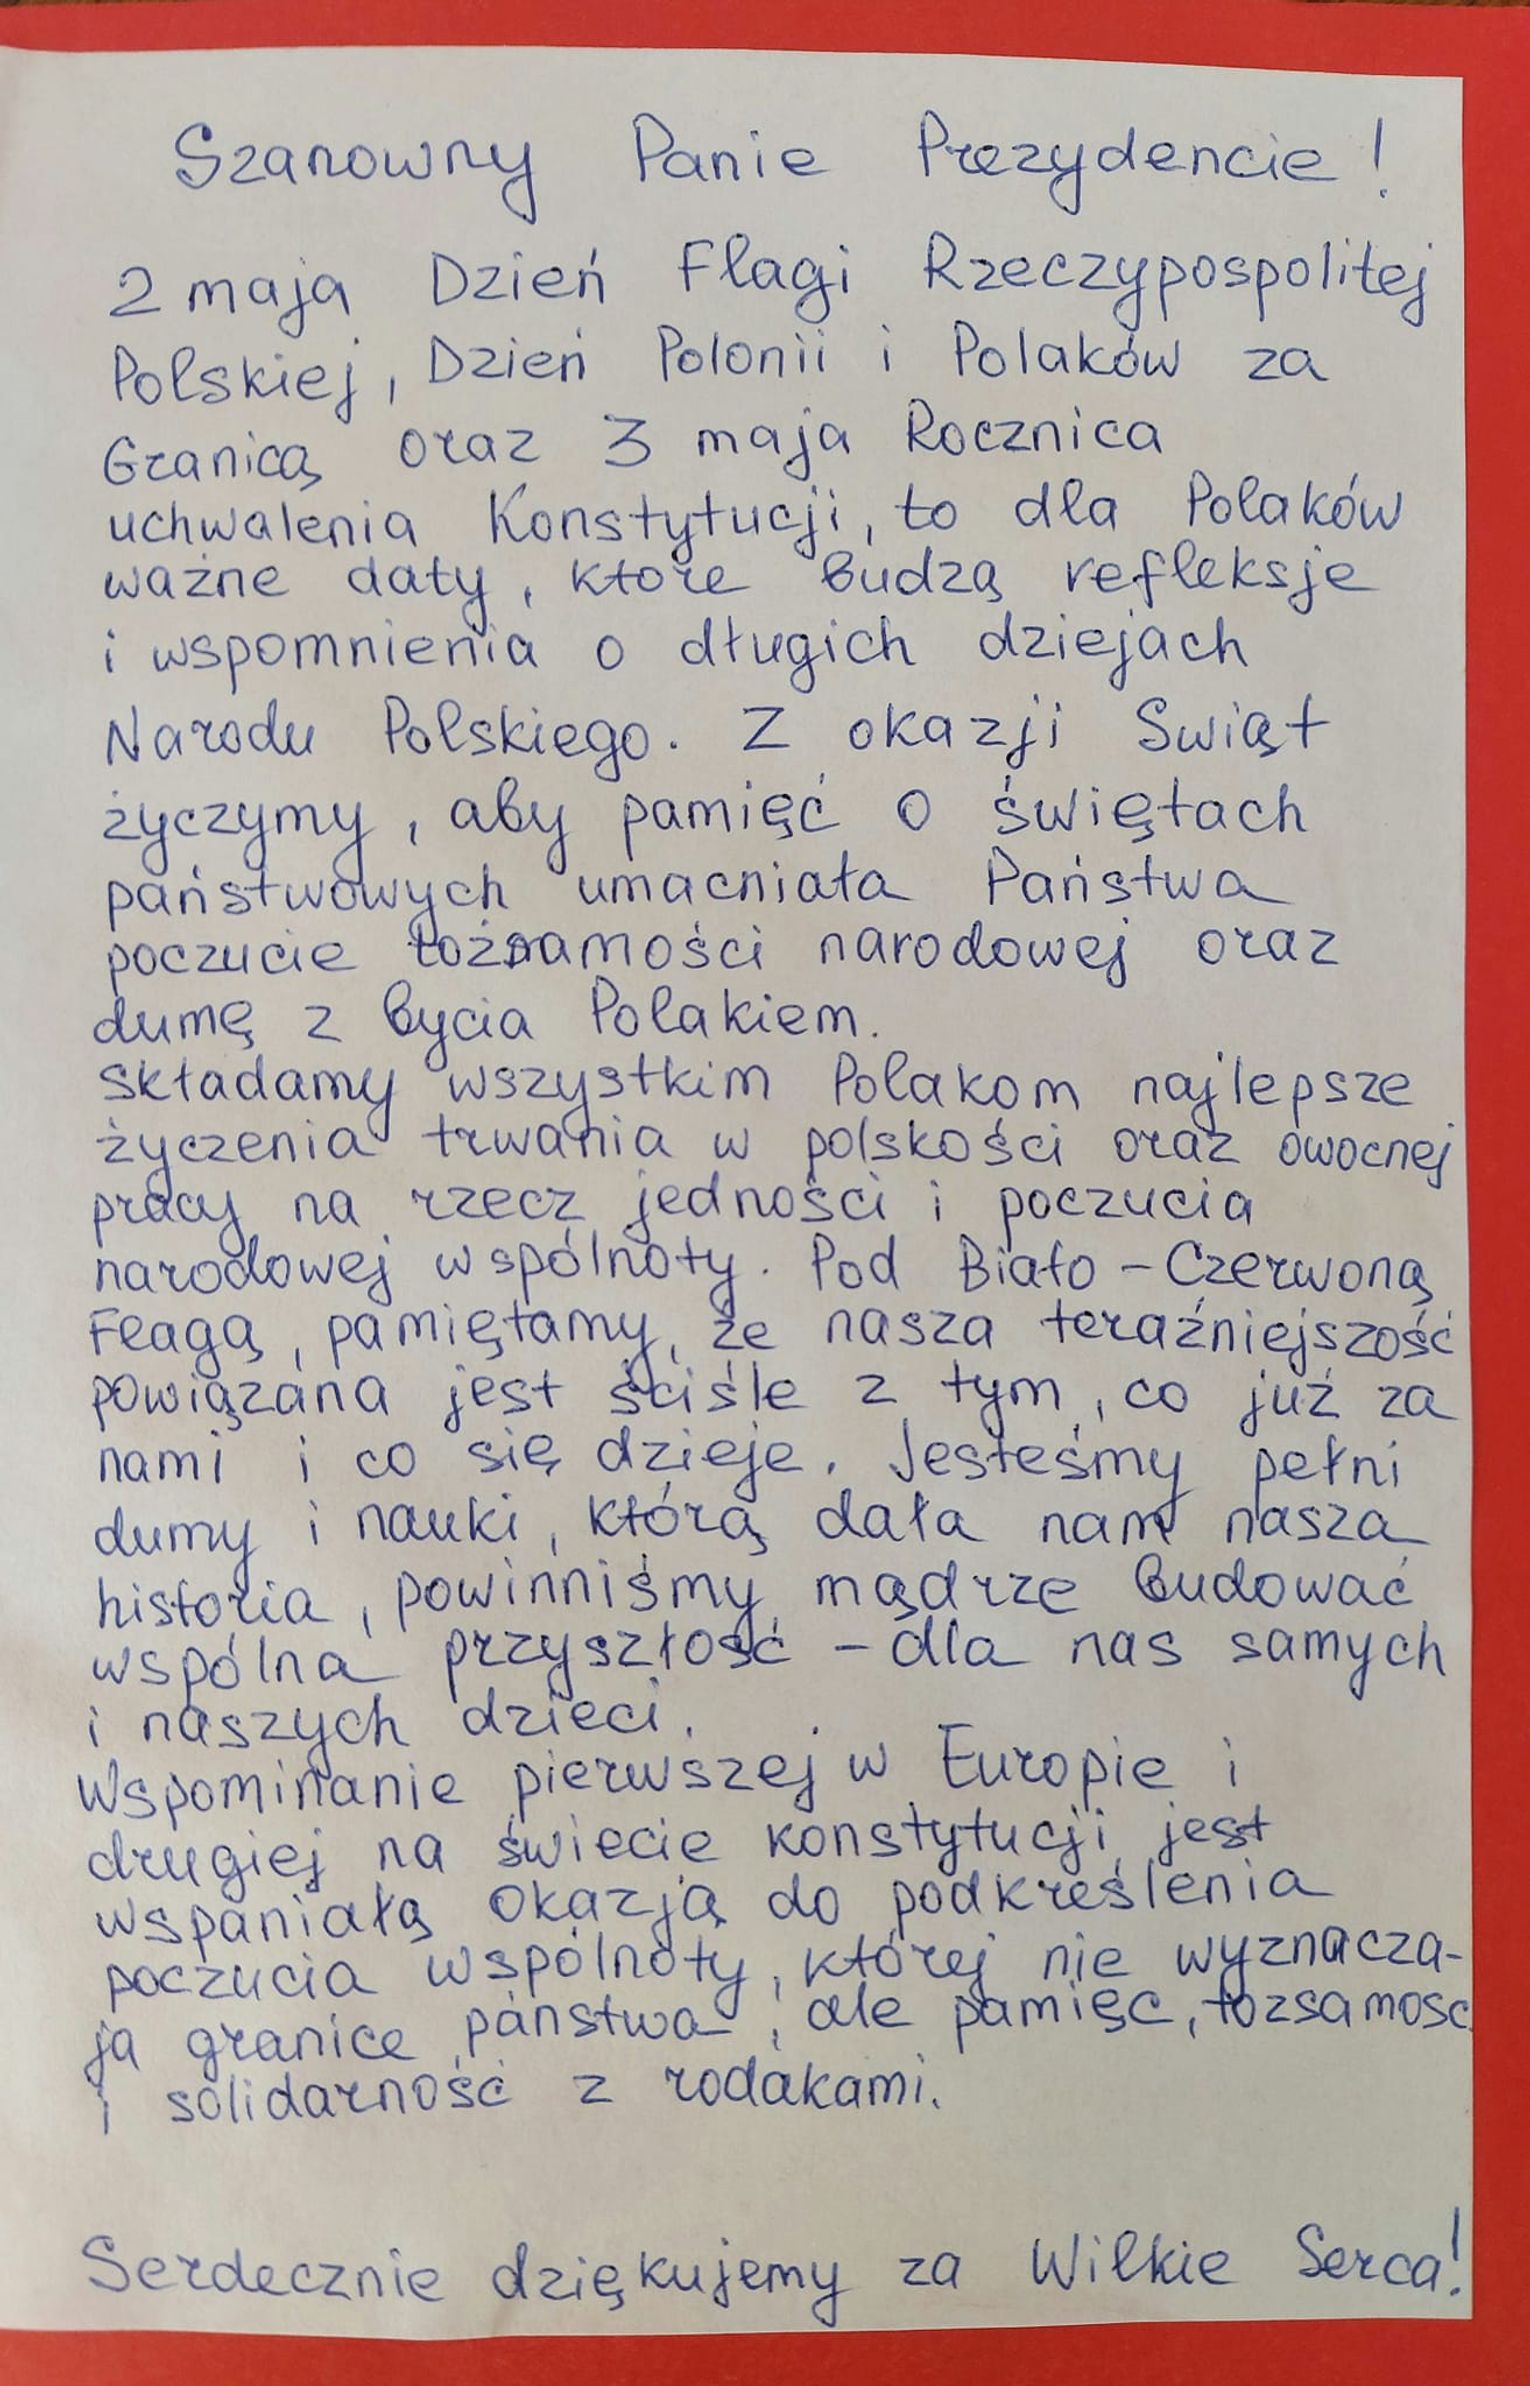 Szanowny Panie Prezydencie!
2 maja Dzień Flagi Rzeczypospolitej
Polskiej, Dzień Polonii i Polaków za
Granicą oraz 3 maja Rocznica
uchwalenia Konstytucji, to dla Polaków
ważne daty, które budzą refleksje
i wspomnienia o długich dziejach
Narodu Polskiego. Z okazji Swiąt
życzymy, aby pamięć o świętach
państwowych umacniała Państwa
poczucie tożsamości narodowej oraz
dumę z bycia Polakiem.
Składamy wszystkim Polakom najlepsze
życzenia trwania w polskości oraz owocnej
pracy na rzecz jedności i poczucia
narodowej wspólnoty. Pod Biało-Czerwoną
Flagą, pamiętamy, że nasza teraźniejszość
powiązana jest ściśle z tym, co już za
nami i co się dzieje. Jesteśmy pełni
dumy i nauki, którą dała nam nasza
historia, powinniśmy mądrze budować
wspólna przyszłość - dla nas samych
i naszych dzieci.
Wspominanie pierwszej w Europie i
drugiej na świecie konstytucji jest
wspaniałą okazją do podkreślenia
poczucia wspólnoty, której nie wyznacza-
ja granice państwa, ale pamięc, tozsamosc
i solidarność z rodakami.
Serdecznie dziękujemy za Wilkie Serca!